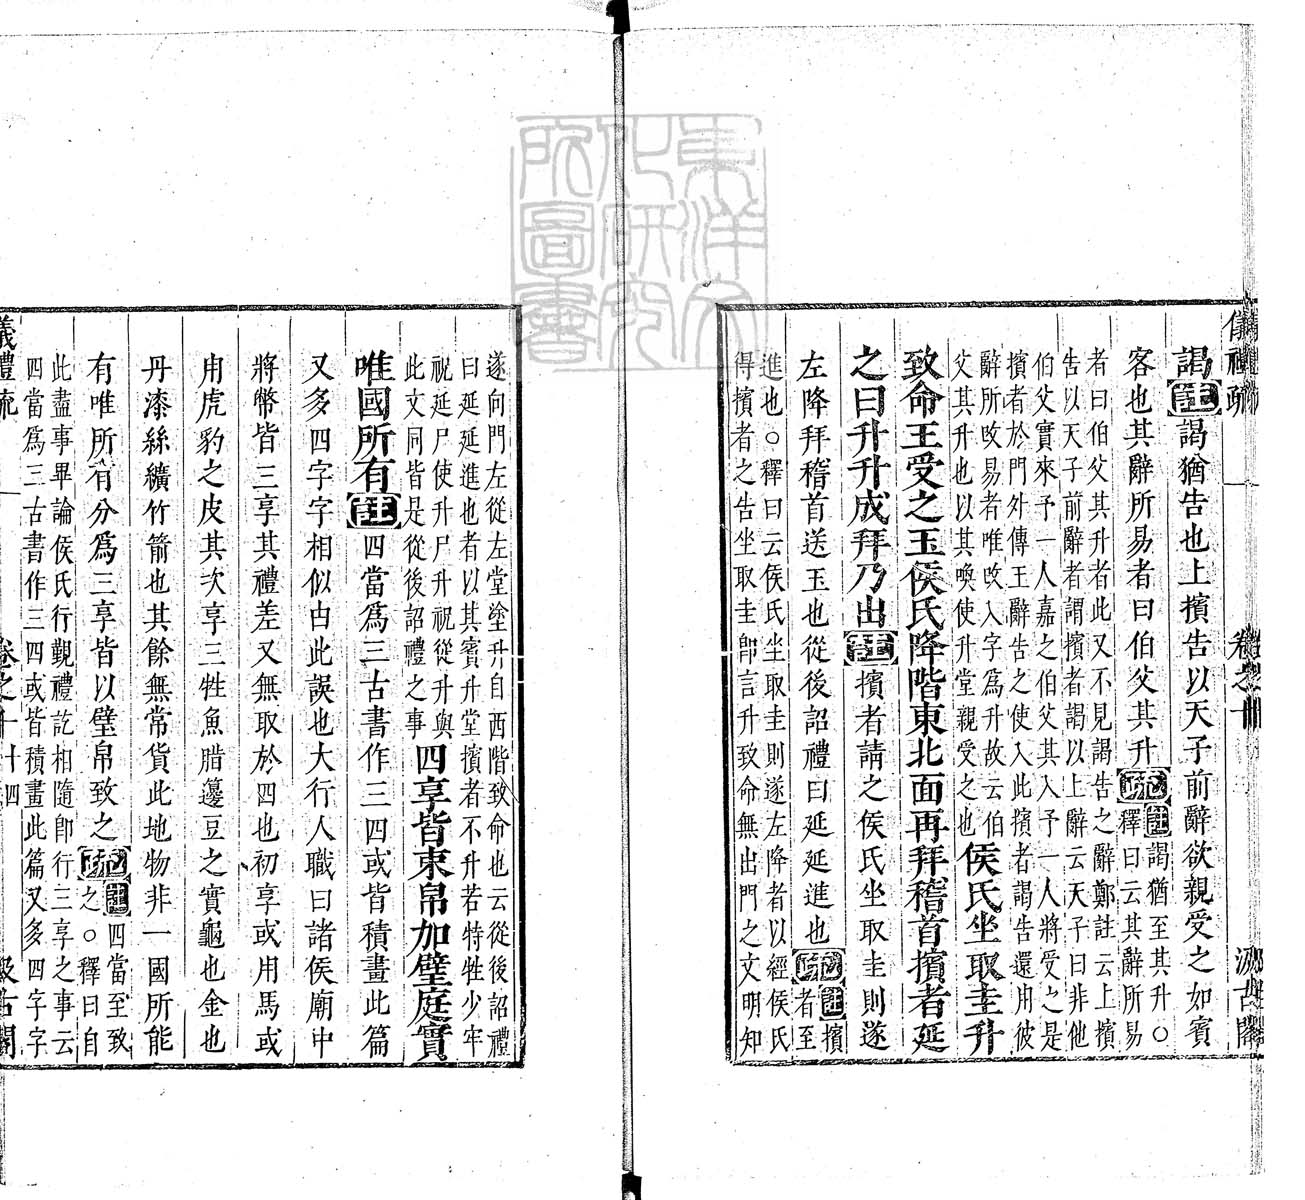 儀禮疏 卷之十 汲古閣
謁註謁猶告也上擯告以天子前辭欲親受之如賓
客也其辭所易者曰伯父其升疏註謁猶至其升○釋曰云其辭所易
者曰伯父其升者此又不見謁告之辭鄭註云上擯
告以天子前辭者謂擯者謁以上辭云天子曰非他
伯父實來予一人嘉之伯父其入予一人將受之是
擯者於門外傳王辭告之使入此擯者謁告還用彼
辭所改易者唯改入字爲升故云伯
父其升也以其喚使升堂親受之也侯氏坐取圭升
致命王受之玉侯氏降階東北面再拜稽首擯者延
之曰升升成拜乃出註擯者請之侯氏坐取圭則遂
左降拜稽首送玉也從後詔禮曰延延進也疏註擯者至
進也○釋曰云侯氏坐取圭則遂左降者以經侯氏
得擯者之告坐取圭卽言升致命無出門之文明知
遂向門左從左堂塗升自西階致命也云從後詔禮
曰延延進也者以其賓升堂擯者不升若特牲少牢
祝延尸使升尸升祝從升與
此文同皆是從後詔禮之事四享皆束帛加璧庭實
唯國所有註四當爲三古書作三四或皆積畫此篇
又多四字字相似由此誤也大行人職曰諸侯廟中
將幣皆三享其禮差又無取於四也初享或用馬或
用虎豹之皮其次享三牲魚腊籩豆之實龜也金也
丹漆絲纊竹箭也其餘無常貨此地物非一國所能
有唯所有分爲三享皆以璧帛致之疏註四當至致之○釋曰自
此盡事畢論侯氏行覲禮訖相隨卽行三享之事云
四當爲三古書作三四或皆積畫此篇又多四字字
儀禮疏 卷之十 十四 汲古閣
東洋文化研究所圖書